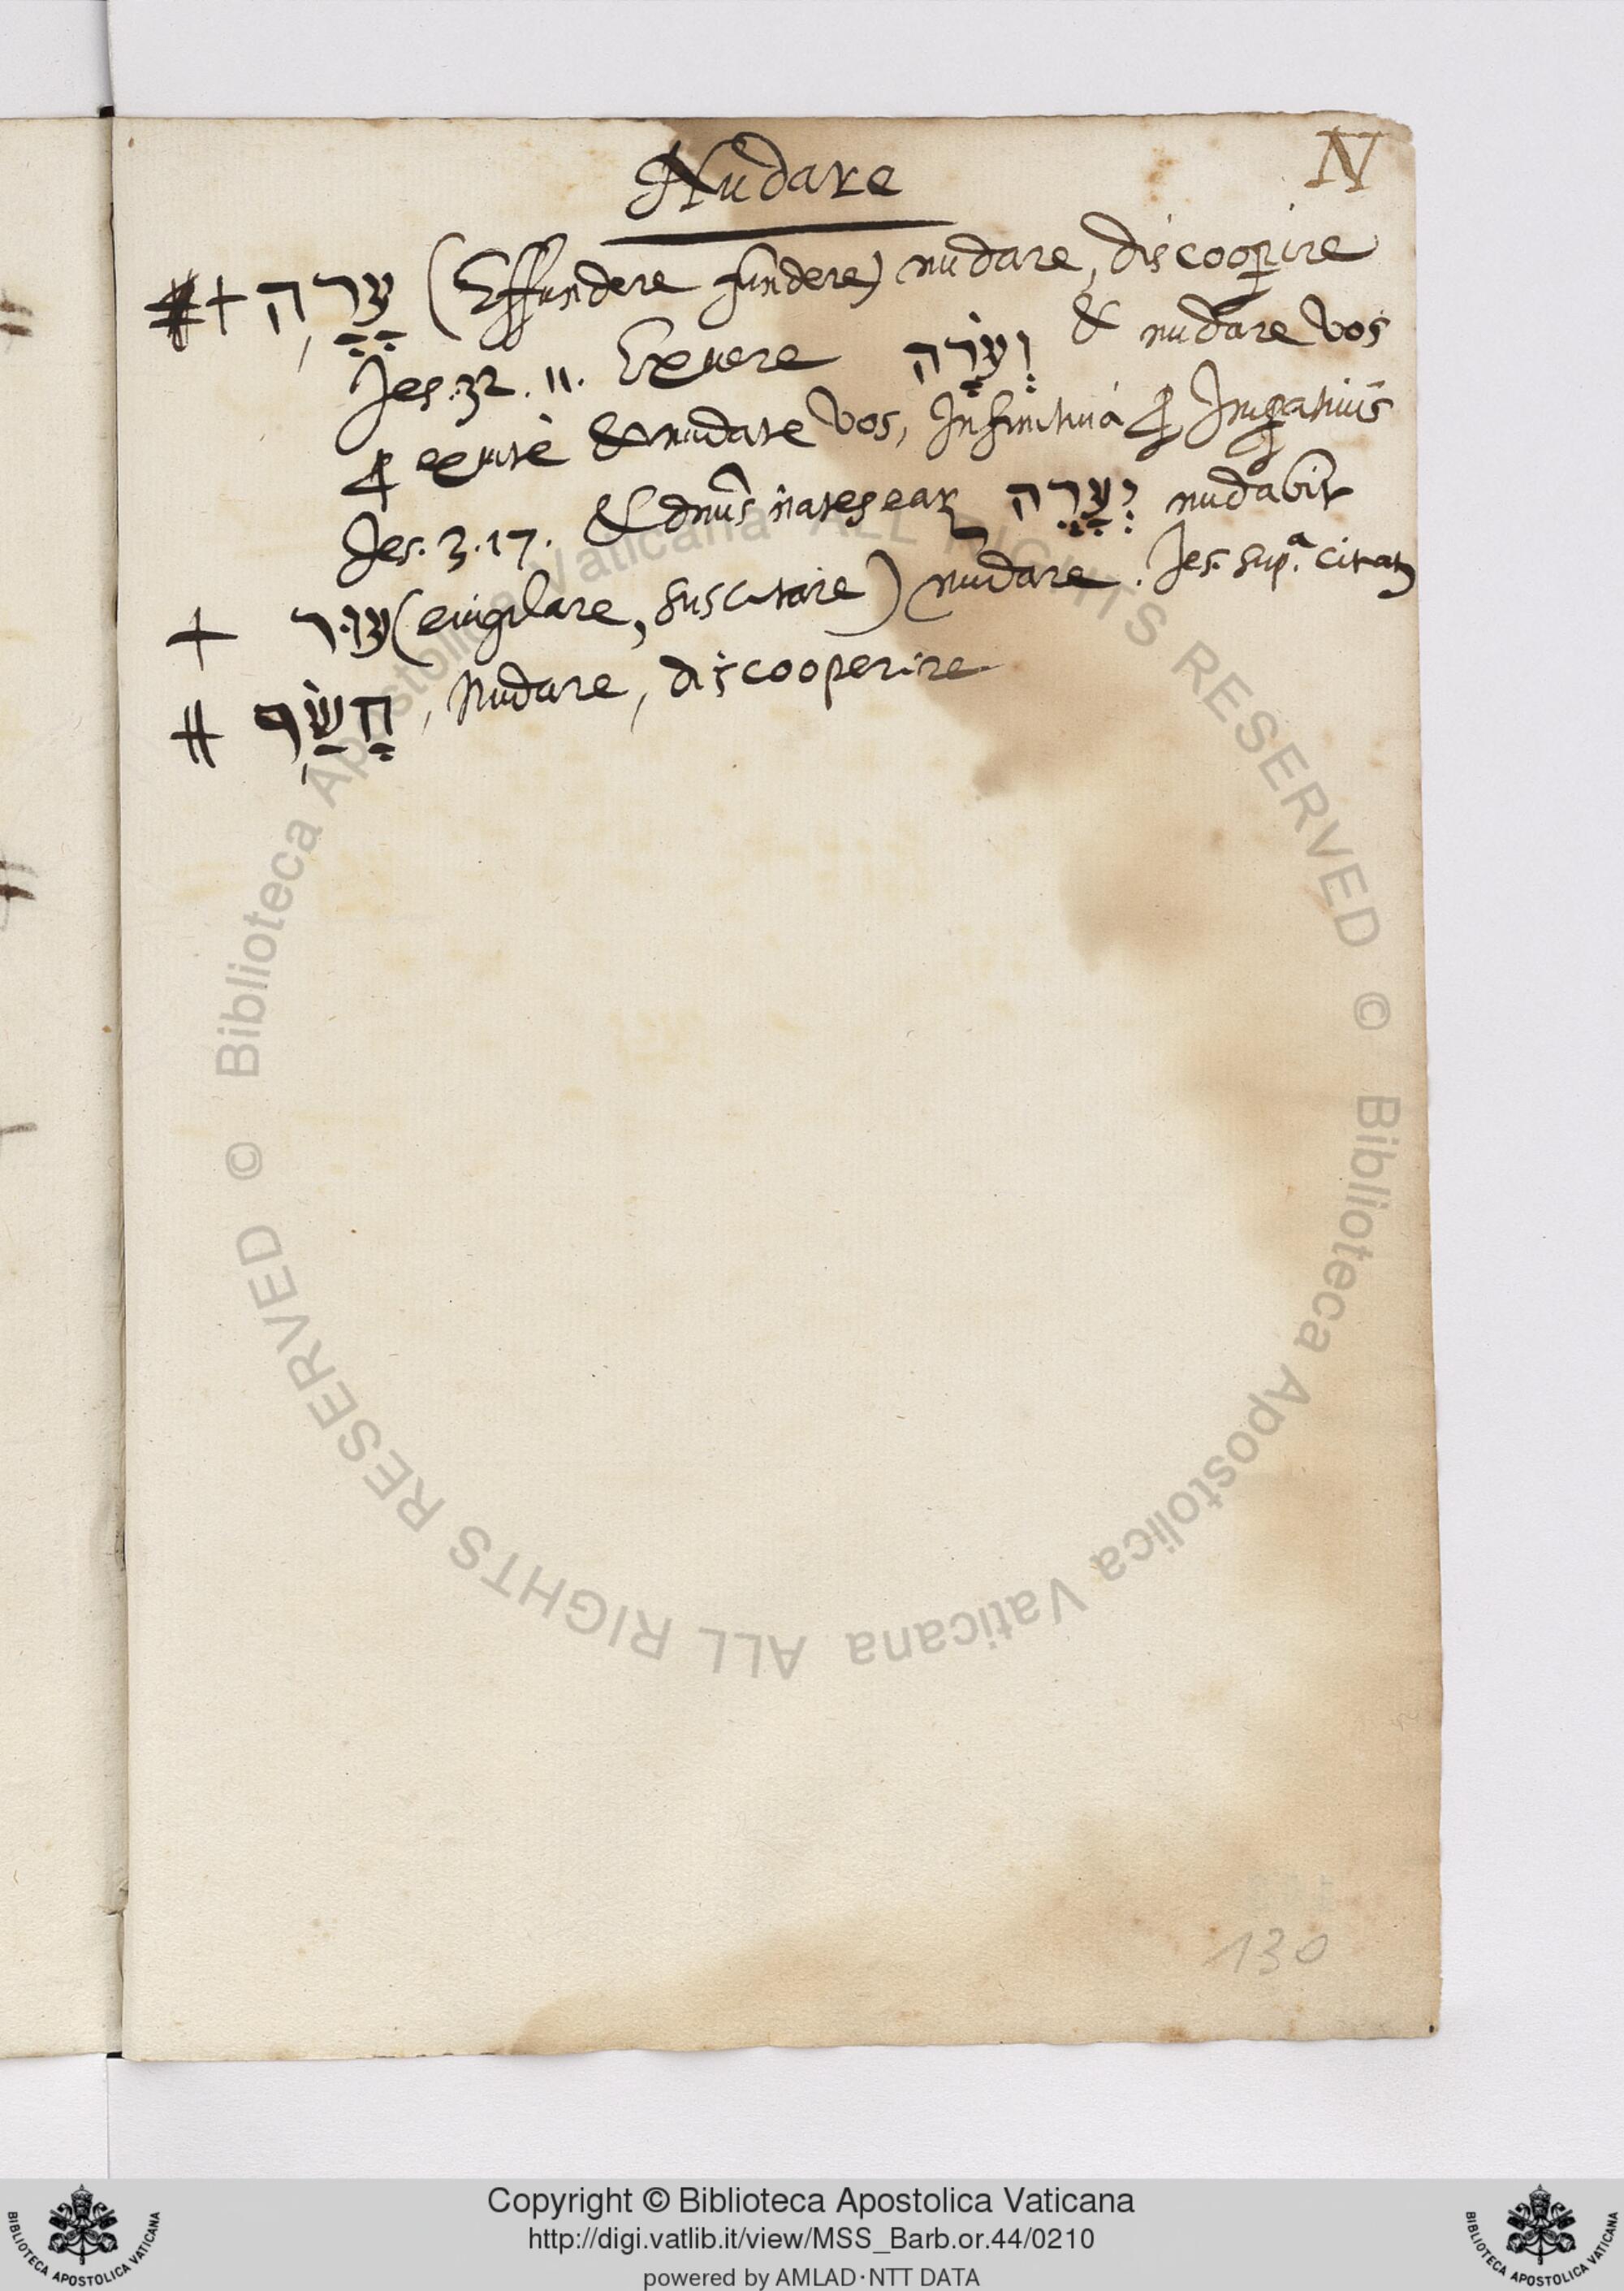 N
Nudare
+ עָרָה (Effundere fundere) nudare, discoop̱ire
Jes. 32. 11. Exuere וְעֹרָה & nudare vos
ꝓ exute & nudate vos, Infinitiuā ꝓ Imp̱atiuis
Jes. 3. 17. & dnūs nates eaꝝ יְעָרֶה nudabit
+ עוּר (euigilare, suscitare) nudare. Jes. supᵃ. citat
# חָשַׂף, Nudare, discooperire
130
© Biblioteca Apostolica Vaticana ALL RIGHTS RESERVED © Biblioteca Apostolica Vaticana ALL RIGHTS RESERVED
Copyright © Biblioteca Apostolica Vaticana
http://digi.vatlib.it/view/MSS_Barb.or.44/0210
powered by AMLAD·NTT DATA
BIBLIOTECA APOSTOLICA VATICANA
BIBLIOTECA APOSTOLICA VATICANA